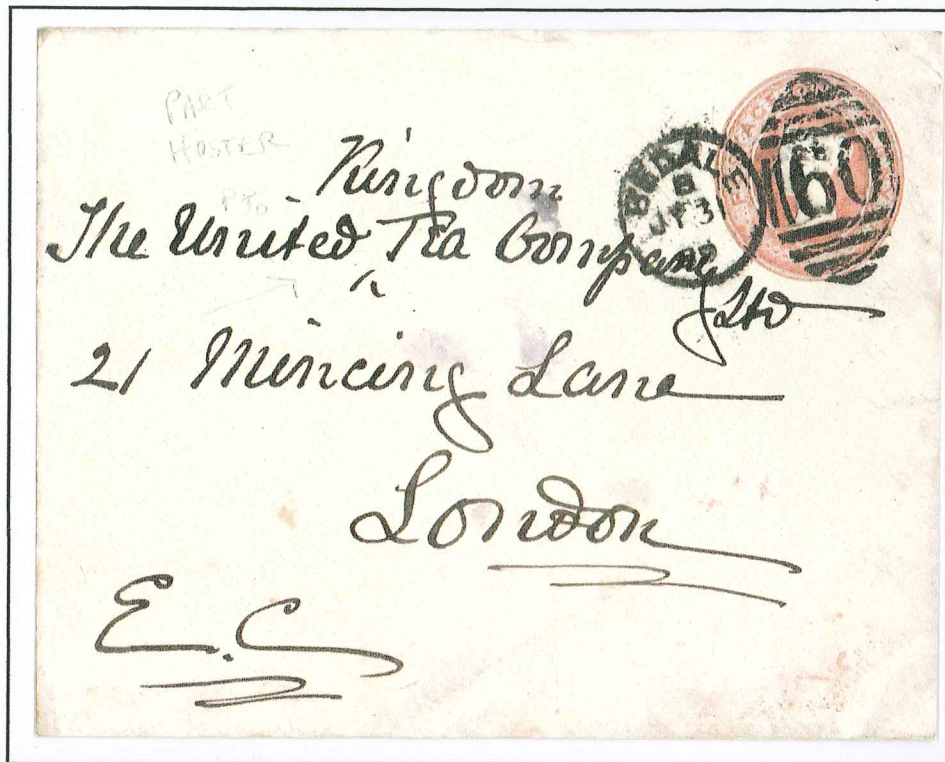 PART
HOSTER
P TO
Kingdom
The United ^ Tea Company
Ltd
21 Mincing Lane
London
E.C
BEDALE
B
60